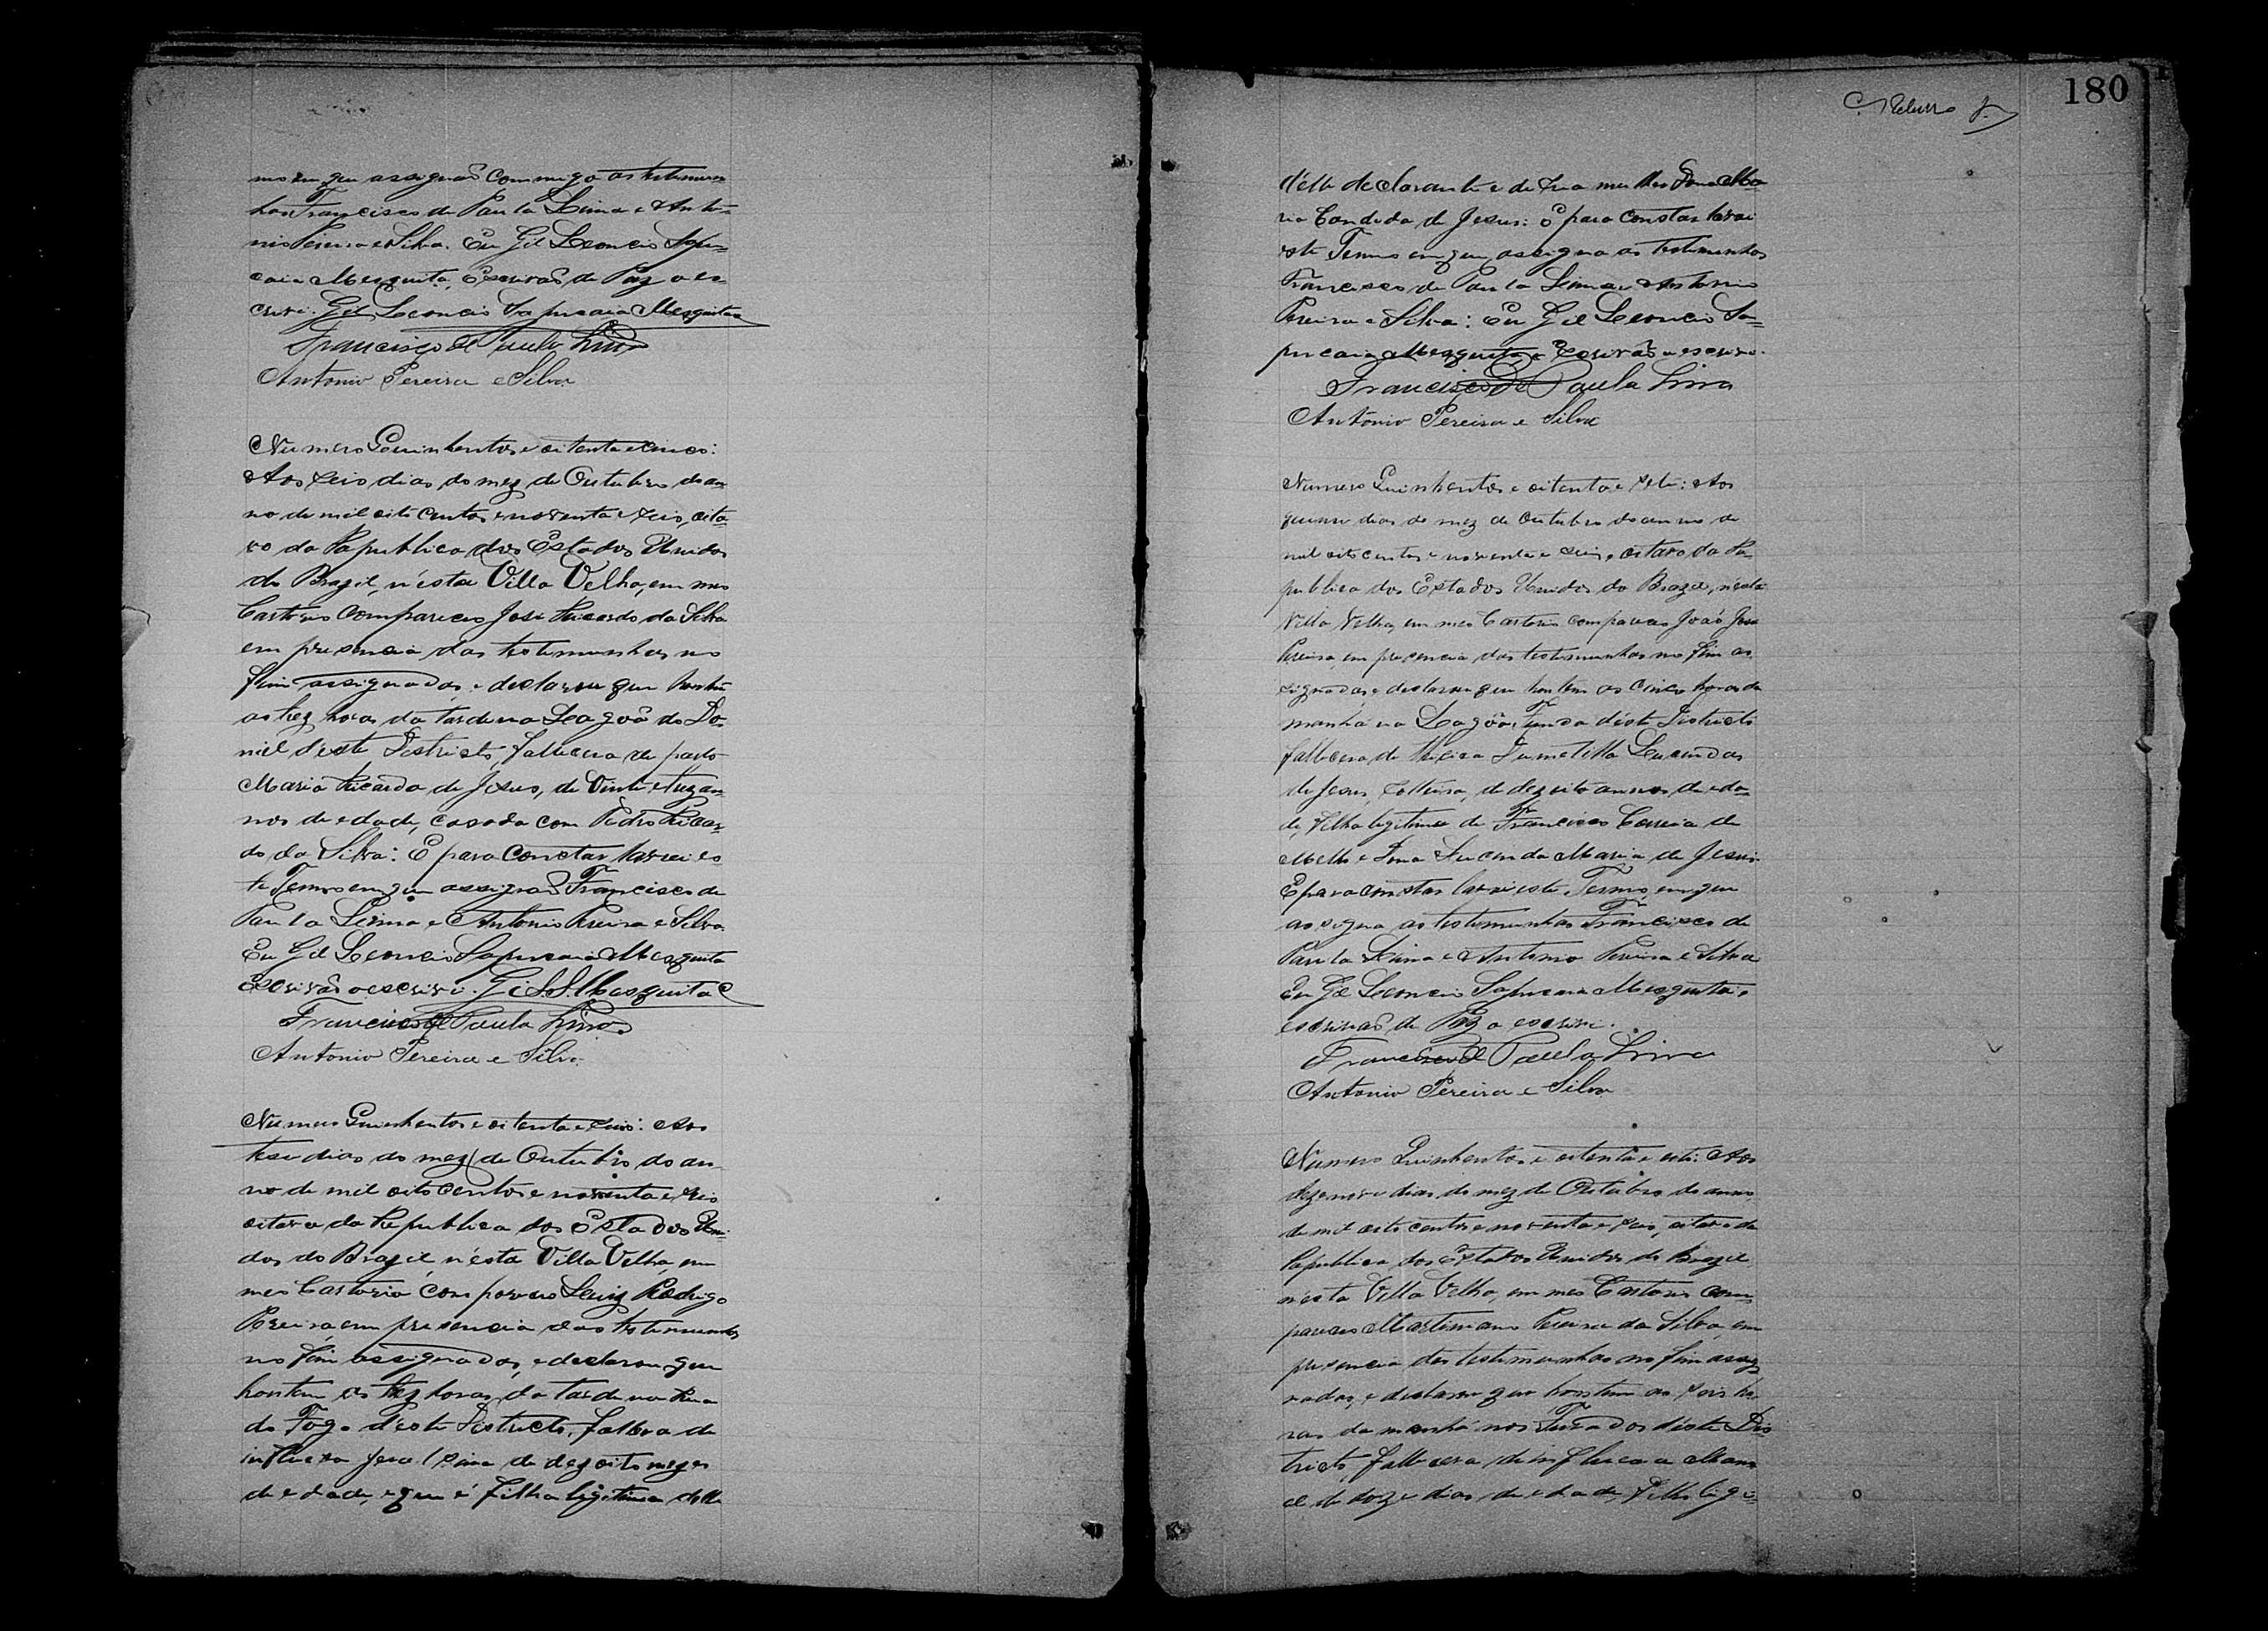 mo em que assignão commigo as testemun
has Francisco de Paula Lima e Anto-
nio Pereira e Silva. Eu Gil Leoncio Sapu-
caia Mesquita, Escrivão de Paz o es-
crivi. Gil Leoncio Sapucaia Mesquita
Francisco de Paula Lima
Antonio Pereira e Silva
Numero Quinhentos e oitenta e cinco:
Aos seis dias do mez de Outubro do an-
no de mil oito centos e noventa e seis, oita-
vo da Republica dos Estados Unidos
do Brazil, n'esta Villa Velha, em meo
Cartorio compareceo José Ricardo da Silva
em presencia das testemunhas no
fim assignadas, e declarou que hontem
as trez horas da tarde na Lagoa do Do-
niel d'este Districto, fallecera de parto
Maria Ricarda de Jesus, de vinte e trez an-
nos de edade, casada com Pedro Ricar-
do da Silva: E para constar lavrei es-
te Termo em que assignão Francisco de
Paula Lima e Antonio Pereira e Silva
Eu Gil Leoncio Sapucaia Mesquita
Escrivão o escrivi. Gil S. Mesquita
Francisco de Paula Lima
Antonio Pereira e Silva
Numero Quinhentos e oitenta e seis: Aos
trese dias do mez de Outubro do an-
no de mil oito centos e noventa e seis
oitavo da Republica dos Estados Uni-
dos do Brazil, n'esta Villa Velha, em
meo Cartorio compareceo Luiz Rodrigo
Pereira em presencia das testemunhas
no fim assignadas, e declarou que
hontem as trez horas da tarde na Rua
do Fogo d'este Districto, fallecera de
de dezoito mezes
de edade, e que é filha legitima delle
d'elle declarante e de sua mulher Dona Ma
ria Candida de Jesus: E para constar lavrei
este Termo em que assigna as testemunhas
Francisco de Paula Lima e Antonio
Pereira e Silva: Eu Gil Leoncio Sa-
pucaia Mesquita, Escrivão o escrivi.
Francisco de Paula Lima
Antonio Pereira e Silva
Numero Quinhentos e oitenta e sete: Aos
quinse dias do mez de Outubro do anno de
mil oito centos e noventa e seis, oitavo da Re-
publica dos Estados Unidos do Brazil, n'esta
Villa Velha, em meo Cartorio compareceo João José
Pereira, em presencia das testemunhas no fim as
signadas, e declarou que hontem as cinco horas da
manhã na Lagôa Funda d'este Districto
fallecera de Lucinda
de Jesus, solteira, de dezoito annos de eda-
de, filha legitima de Francisco Correia de
Mello e Dona Lucinda Maria de Jesus.
E para constar lavrei este Termo, em que
assigna as testemunhas Francisco de
Paula Lima e Antonio Pereira e Silva
Eu Gil Leoncio Sapucaia Mesquita,
escrivão de Paz o escrivi.
Francisco de Paula Lima
Antonio Pereira e Silva
Numero Quinhentos e oitenta e oito: Aos
dezenove dias do mez de Outubro do anno
de mil oito centos e noventa e seis, oitavo da
Republica dos Estados Unidos do Brazil
n'esta Villa Velha, em meo Cartorio com-
pareceo Martiniano Pereira da Silva, em
presencia das testemunhas no fim assig-
nadas, e declarou que hontem as seis ho-
ras da manhã nos Furados d'este Dis-
tricto, fallecera de influenca Mano-
el de doze dias de edade, filho legi-
180